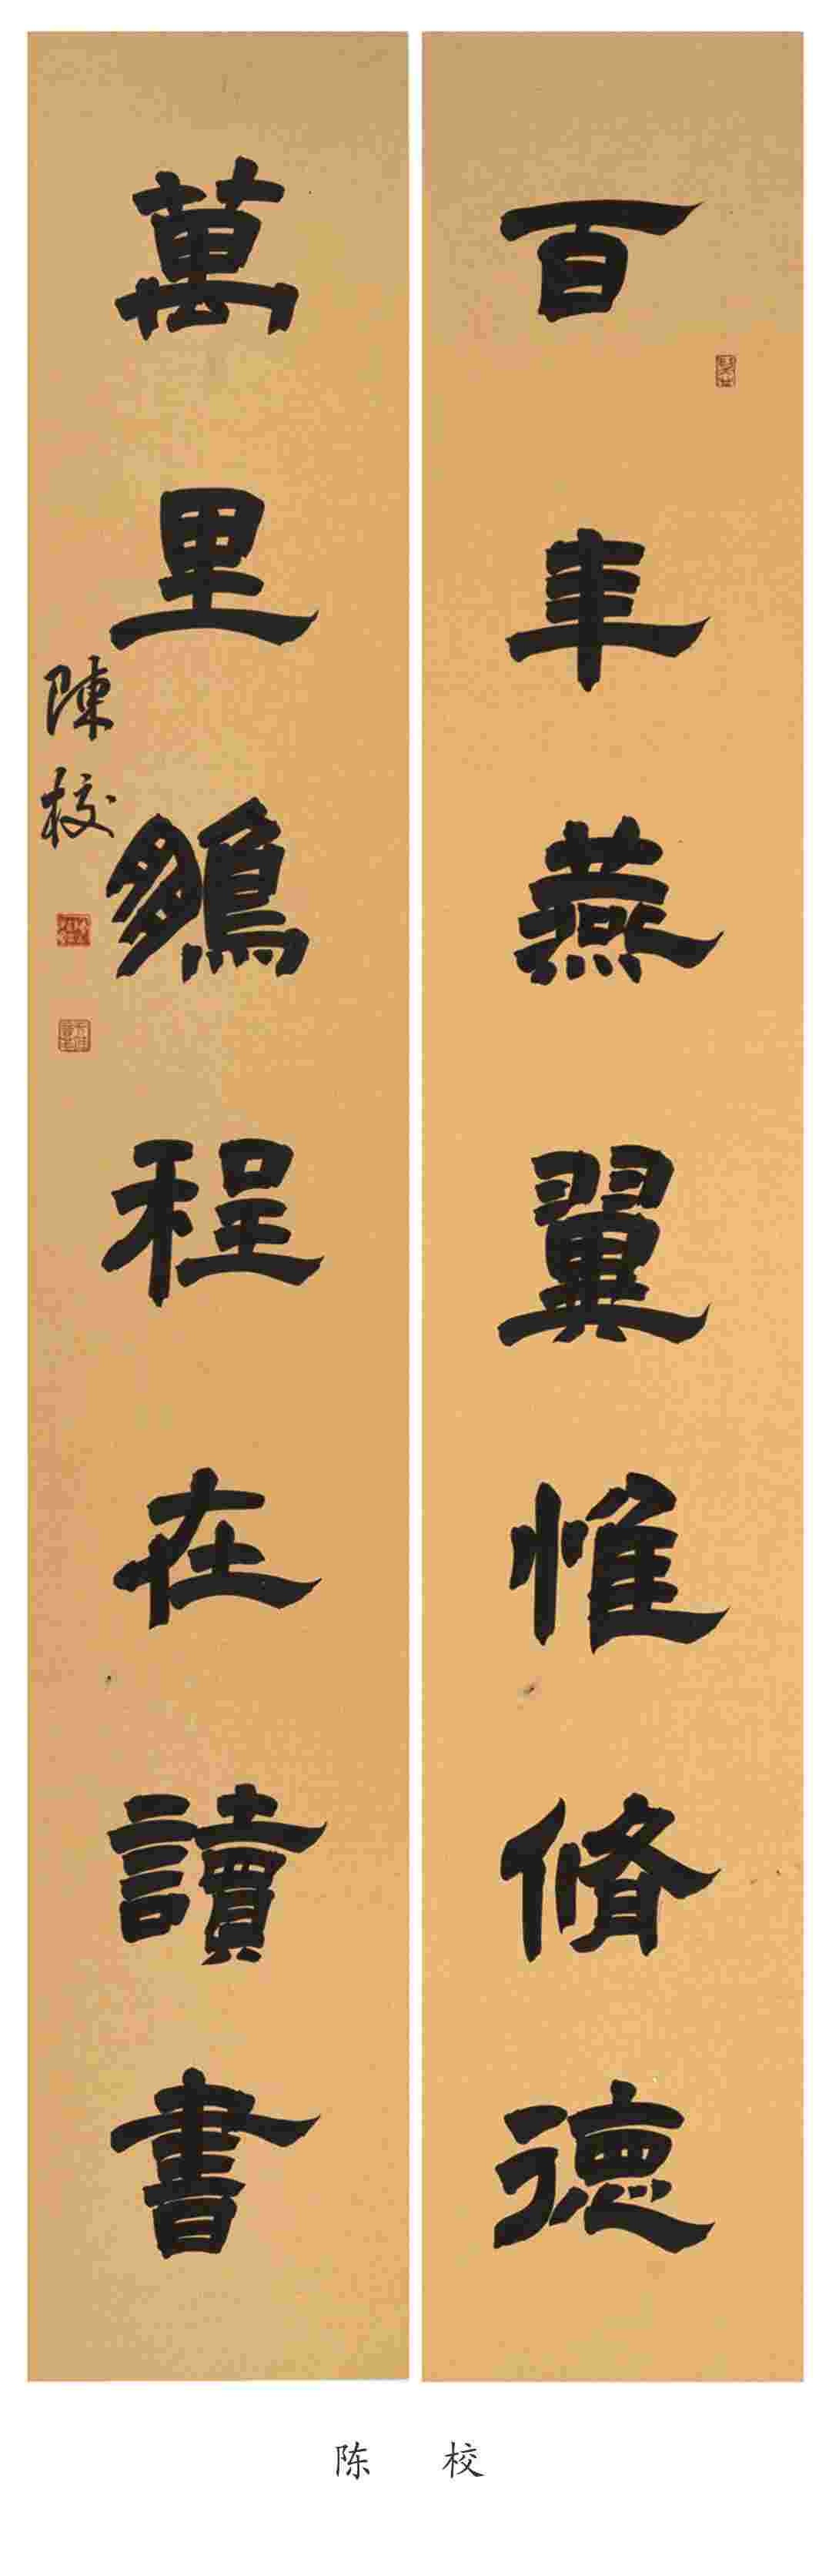 百年燕翼惟脩德
萬里鵬程在讀書
陳校
陈 校